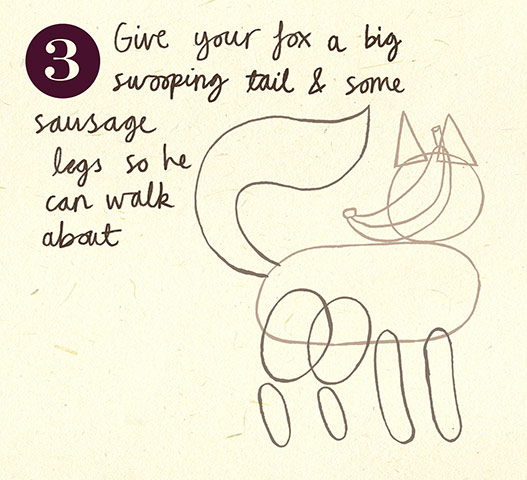 3
Give your fox a big
swooping tail & some
sausage
legs so he
can walk
about